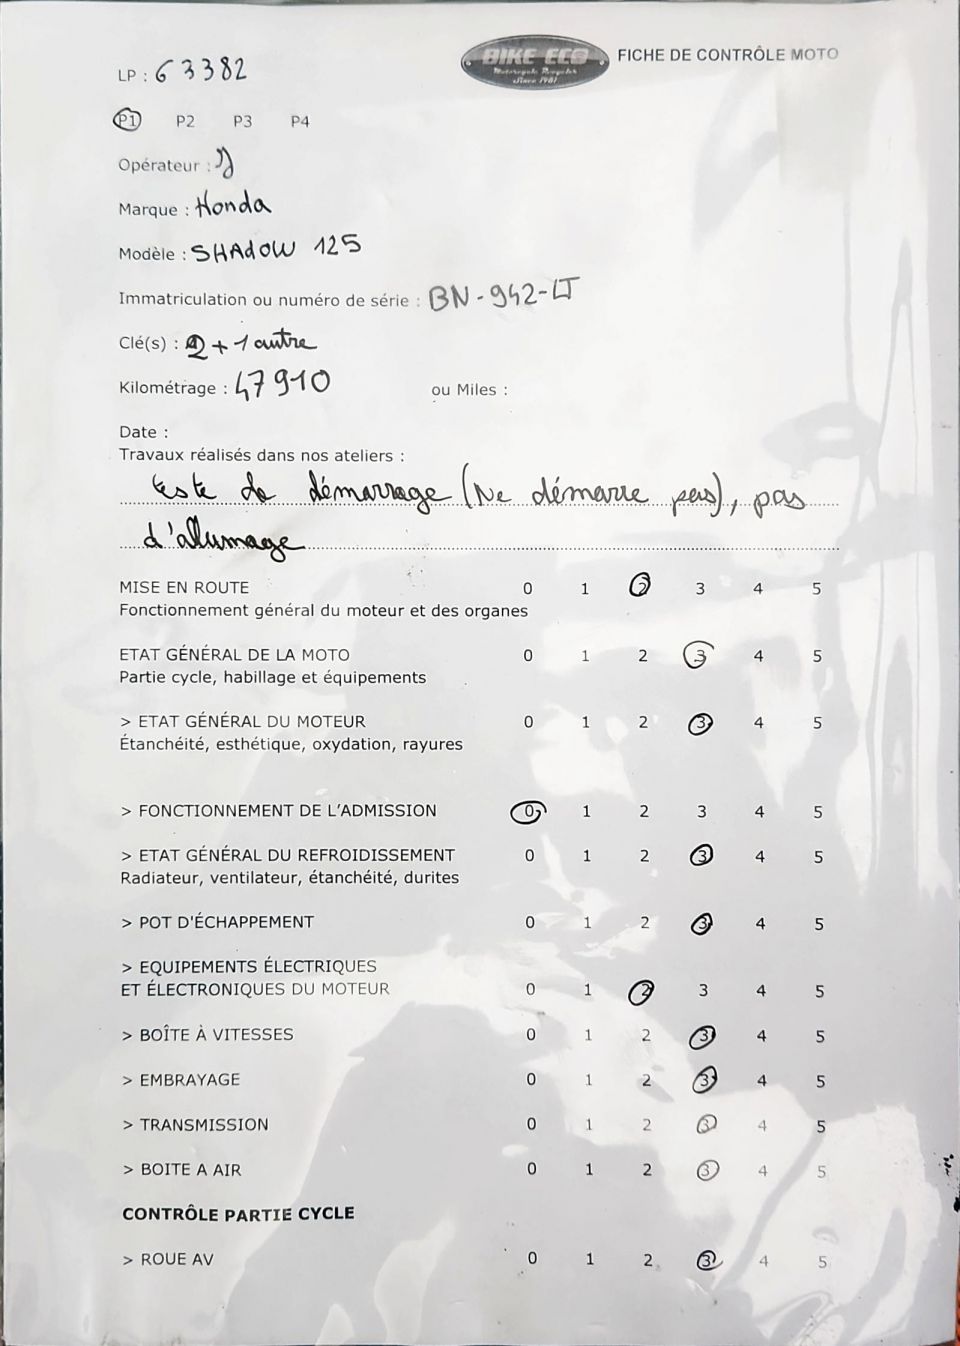 LP : 63382
BIKE ECO
Motorcycle Recycler
Since 1981
FICHE DE CONTRÔLE MOTO
P1 P2 P3 P4
Opérateur :
Marque : Honda
Modèle : SHAdOW 125
Immatriculation ou numéro de série : BN-942-LT
Clé(s) : 2 + 1 autre
Kilométrage : 47910 ou Miles :
Date :
Travaux réalisés dans nos ateliers :
teste de démarrage (Ne démarre pas), pas
d'allumage
MISE EN ROUTE 0 1 2 3 4 5
Fonctionnement général du moteur et des organes
ETAT GÉNÉRAL DE LA MOTO 0 1 2 3 4 5
Partie cycle, habillage et équipements
> ETAT GÉNÉRAL DU MOTEUR 0 1 2 3 4 5
Étanchéité, esthétique, oxydation, rayures
> FONCTIONNEMENT DE L'ADMISSION 0 1 2 3 4 5
> ETAT GÉNÉRAL DU REFROIDISSEMENT 0 1 2 3 4 5
Radiateur, ventilateur, étanchéité, durites
> POT D'ÉCHAPPEMENT 0 1 2 3 4 5
> EQUIPEMENTS ÉLECTRIQUES
ET ÉLECTRONIQUES DU MOTEUR 0 1 2 3 4 5
> BOÎTE À VITESSES 0 1 2 3 4 5
> EMBRAYAGE 0 1 2 3 4 5
> TRANSMISSION 0 1 2 3 4 5
> BOITE A AIR 0 1 2 3 4 5
CONTRÔLE PARTIE CYCLE
> ROUE AV 0 1 2 3 4 5